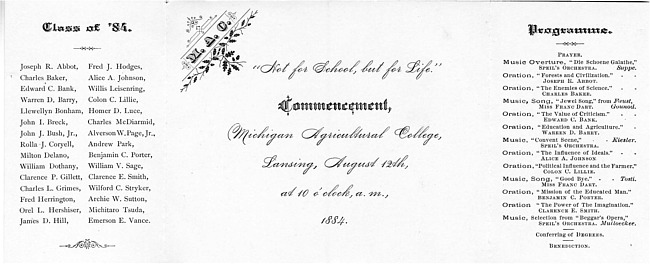 Class of '84.
Joseph R. Abbot, Fred J. Hodges,
Charles Baker, Alice A. Johnson,
Edward C. Bank, Willis Leisenring,
Warren D. Barry, Colon C. Lillie,
Llewellyn Bonham, Homer D. Luce,
John I. Breck, Charles McDiarmid,
John J. Bush, Jr., Alverson W. Page, Jr.,
Rolla J. Coryell, Andrew Park,
Milton Delano, Benjamin C. Porter,
William Dothany, William V. Sage,
Clarence P. Gillett, Clarence E. Smith,
Charles L. Grimes, Wilford C. Stryker,
Fred Herrington, Archie W. Sutton,
Orel L. Hershiser, Michitaro Tsuda,
James D. Hill, Emerson E. Vance.
M.A.C.
"Not for School, but for Life."
Commencement,
Michigan Agricultural College,
Lansing, August 12th,
at 10 o'clock, a. m.,
1884.
Programme.
PRAYER.
Music Overture, "Die Schoene Galathe,"
SPEIL'S ORCHESTRA. Suppe.
Oration, "Forests and Civilization." - -
JOSEPH R. ABBOT.
Oration, "The Enemies of Science." - -
CHARLES BAKER.
Music, Song, "Jewel Song," from Faust,
MISS FRANC DART. Gounod.
Oration, "The Value of Criticism." - -
EDWARD C. BANK.
Oration, "Education and Agriculture." -
WARREN D. BARRY.
Music, "Convent Scene," - - Riesler.
SPEIL'S ORCHESTRA.
Oration, "The Influence of Ideals." - -
ALICE A. JOHNSON
Oration, "Political Influence and the Farmer,"
COLON C. LILLIE.
Music, Song, "Good Bye." - - Tosti.
MISS FRANC DART.
Oration, "Mission of the Educated Man."
BENJAMIN C. PORTER.
Oration "The Power of The Imagination."
CLARENCE E. SMITH.
Music, Selection from "Beggar's Opera,"
SPEIL'S ORCHESTRA. Milloecker.
Conferring of DEGREES.
BENEDICTION.